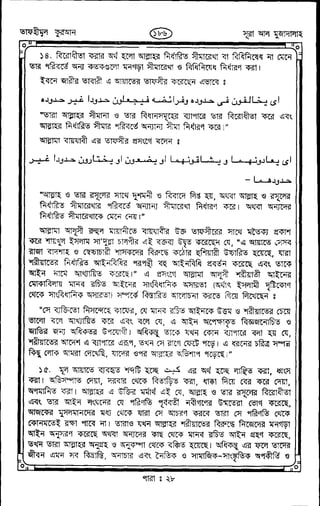 তাফহীমুল কুরআন
১৮৬
সূরা আল মুজাদালাহ
১৪. বিরোধীতা করার অর্থ হলো আল্লাহর নির্ধারিত সীমারেখা বা বিধিনিষেধ না মেনে
তার পরিবর্তে অন্য কতকগুলো মনগড়া সীমারেখা ও বিধিনিষেধ নির্ধারণ করা।
ইবনে জারীর তাবারী এ আয়াতের তাফসীর করেছেন এভাবে :
اى يخالفون فى حدوده وفرائضه فيجعلون حدودا غير حدوده
"তারা আল্লাহর সীমানা ও তার বিধানসমূহের ব্যাপারে তার বিরোধীতা করে এবং
আল্লাহর নির্ধারিত সীমার পরিবর্তে অন্যান্য সীমা নির্ধারণ করে।"
আল্লামা বায়যাবী এর তাফসীর প্রসংগে বলেন :
اى يعادونهما و يشاقونهما او يضعون او يختارون حدودا غير
حدودهما -
"আল্লাহ ও তাঁর রসূলের সাথে দুশমনী ও বিবাদে লিপ্ত হয়, অথবা আল্লাহ ও রসূলের
নির্ধারিত সীমারেখার পরিবর্তে অন্যান্য সীমারেখা নির্ধারণ করে। অথবা অন্যদের
নির্ধারিত সীমারেখাকে মেনে নেয়।"
আল্লামা আলূসী রূহুল মায়ানীতে বায়যাবীর উক্ত তাফসীরের সাথে মতৈক্য প্রকাশ
করে শায়খুল ইসলাম সা'দুল্লা চালপীর এই বক্তব্য উদ্ধৃত করেছেন যে, "এ আয়াতে সেসব
রাজা বাদশাহ ও স্বেচ্ছাচারী শাসকদের বিরুদ্ধে কঠোর হুঁশিয়ারী উচ্চারিত হয়েছে, যারা
শরীয়াতের নির্ধারিত আইনবিধির পরিপন্থী বহু আইনবিধি প্রবর্তন করেছে এবং তাকে
আইন নামে আখ্যায়িত করেছে।" এ প্রসংগে আল্লামা আলূসী শরীয়াতী আইনের
মোকাবিলায় মানব রচিত আইনের সাংবিধানিক অসারতা (অর্থাৎ ইসলামী দৃষ্টিকোণ
থেকে সাংবিধানিক অসারতা) সম্পর্কে বিস্তারিত আলোচনা করতে গিয়ে লিখেছেন :
"সে ব্যক্তিতো নিঃসন্দেহে কাফের, যে মানব রচিত আইনকে উত্তম ও শরীয়াতের চেয়ে
ভালো বলে আখ্যায়িত করে এবং বলে যে, এ আইন অপেক্ষাকৃত বিজ্ঞজনোচিত ও
জাতির জন্য অধিকতর উপযোগী। অধিকন্তু তাকে যখন কোন ব্যাপারে বলা হয় যে,
শরীয়াতের আদেশ এ ব্যাপারে এরূপ, তখন সে রাগে ফেটে পড়ে। এ ধরনের চরিত্র সম্পন্ন
কিছু লোক আমরা দেখেছি, যাদের ওপর আল্লাহর অভিশাপ পড়েছে।"
১৫. মূল আয়াতে ব্যবহৃত শব্দটি হচ্ছে كبت এর অর্থ হচ্ছে লাঞ্ছিত করা, ধ্বংস
করা। অভিসম্পাত দেয়া, দরবার থেকে বিতাড়িত করা, ধাক্কা দিয়ে বের করে দেয়া,
অপমানিত করা। আল্লাহর এ উক্তির মর্মার্থ এই যে, আল্লাহ ও তার রসূলের বিরোধীতা
এবং তার আইন লংঘনের যে পরিণতি পূর্ববর্তী নবীগণের উম্মতেরা ভোগ করেছে,
আজকের মুসলমানদের মধ্য থেকে যারা সে আচরণ করবে তারা সে পরিণতি থেকে
কোনমতেই রক্ষা পাবে না। তারাও যখন আল্লাহর শরীয়াতের বিরুদ্ধে নিজেদের মনগড়া
আইন অনুসরণ করেছে অথবা অন্যদের কাছ থেকে মানব রচিত আইন গ্রহণ করেছে,
তখন তারা আল্লাহর অনুগ্রহ ও অনুকম্পা থেকে বঞ্চিত হয়েছে। অধিকন্তু এর ফলে তাদের
জীবন এমন সব বিভ্রান্তি, অনাচার এবং নৈতিক ও সামাজিক-সাংস্কৃতিক অপকীর্তি ও
পারা : ২৮